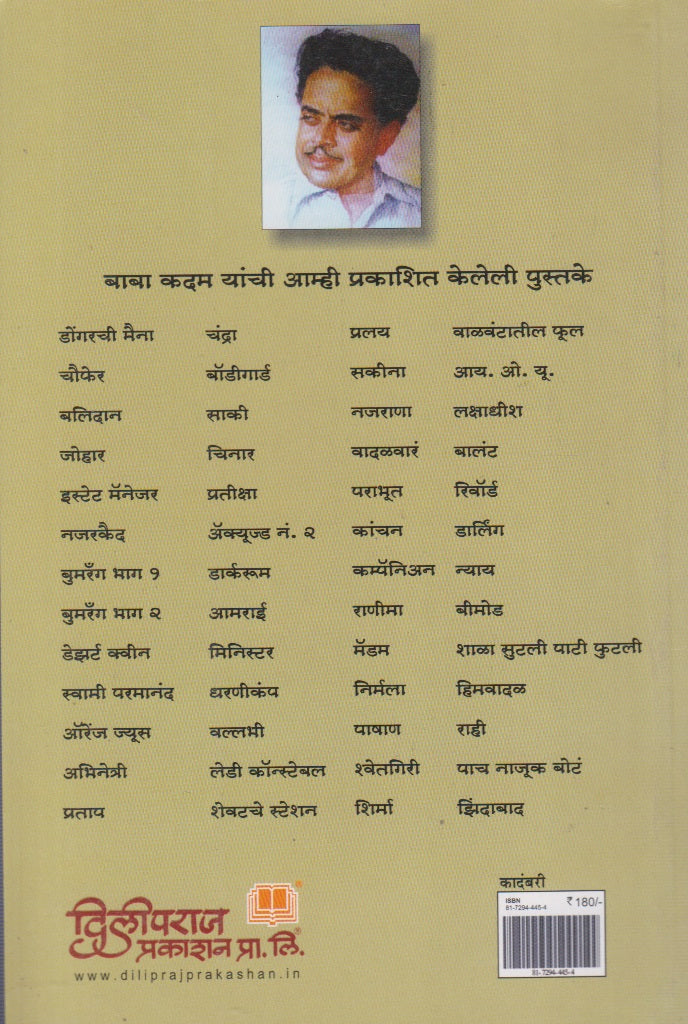 बाबा कदम यांची आम्ही प्रकाशित केलेली पुस्तके
डोंगरची मैना चंद्रा प्रलय वाळवंटातील फूल
चौफेर बॉडीगार्ड सकीना आय. ओ. यू.
बलिदान साकी नजराणा लक्षाधीश
जोहार चिनार वादळवारं बालंट
इस्टेट मॅनेजर प्रतीक्षा पराभूत रिवॉर्ड
नजरकैद ॲक्यूज्ड नं. २ कांचन डार्लिंग
बुमरँग भाग १ डार्करूम कम्पॅनिअन न्याय
बुमरँग भाग २ आमराई राणीमा बीमोड
डेझर्ट क्वीन मिनिस्टर मॅडम शाळा सुटली पाटी फुटली
स्वामी परमानंद धरणीकंप निर्मला हिमवादळ
ऑरेंज ज्यूस वल्लभी पाषाण राही
अभिनेत्री लेडी कॉन्स्टेबल श्वेतगिरी पाच नाजूक बोटं
प्रताप शेवटचे स्टेशन शिर्मा झिंदाबाद
कादंबरी
ISBN ₹ 180/-
81-7294-445-4
81-7294-445-4
दिलीपराज ®
प्रकाशन प्रा. लि. ®
www.diliprajprakashan.in